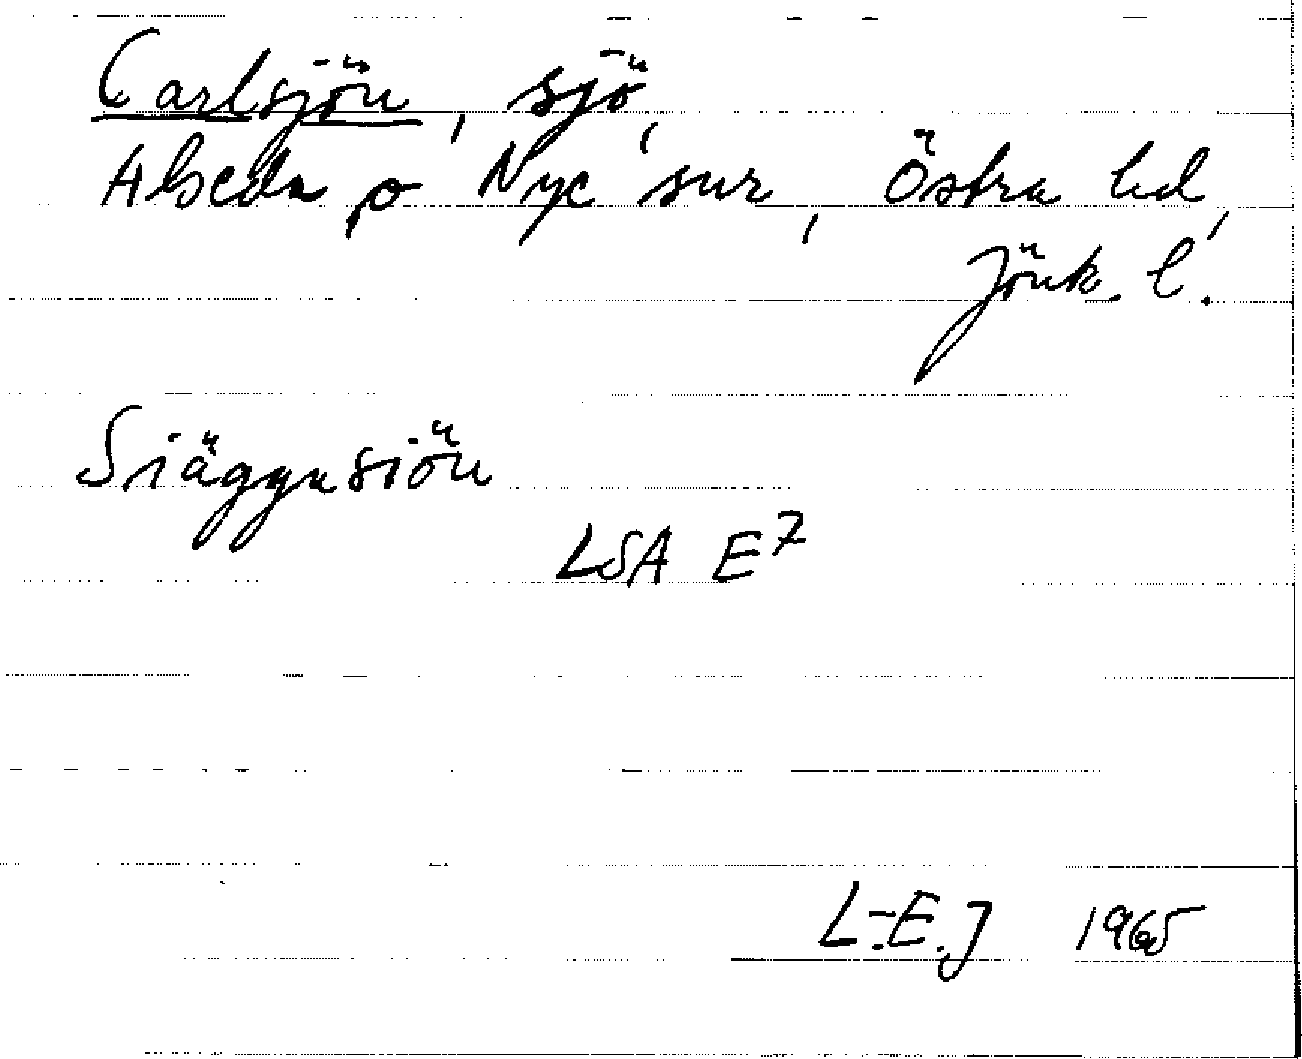 Carlsjön, sjö,
Alseda p Nye sur, Östra hd,
Jönk. l.
Siäggnsiön
LSA E7
L-E.J 1965